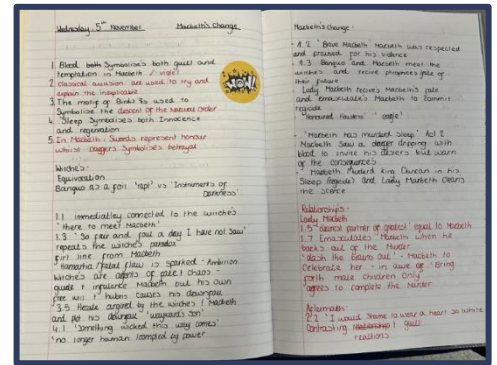 Wednesday, 5th November Macbeth's Change
1. Blood both Symbolises both guilt and
temptation in Macbeth
2. Classical allusion are used to try and
explain the inexplicable
3. The motif of Birds is used to
Symbolise the descent of the Natural Order
4. Sleep Symbolises both Innocence
and regeneration
5. In Macbeth, Swords represent honour
whilst daggers Symbolises betrayal
WOW!
Witche's -
Equivocation
Banquo as a foil 'rapt' vs 'Instruments of
Darkness'
1.1 immediatley connected to the witche's
'there to meet Macbeth'
1.3 'So fair and foul a day I have not saw'
repeats the witche's paradox
first line from Macbeth
Hamartia / fatal flaw is sparked - Ambition
Witches are agents of fate + chaos -
guide + influence Macbeth but his own
free will + hubris causes his downfall
3.5 Hecate angered by the witches + Macbeth
and plot his downfall 'wayward son'
4.1 'Something wicked this way comes'
'no longer human tempted by power
Macbeth's Change -
- 1.2 'Brave Macbeth' Macbeth was respected
and praised for his violence
- 1.3 Banquo and Macbeth meet the
witches and recive
their future
- Lady Macbeth recives Macbeth's
and emasculate's Macbeth to commit
regicide
'Honoured Hostess'
- 'Macbeth has murdered Sleep' Act 2
Macbeth Saw a dagger dripping with
blood to invite his desires but warn
of the consequences
- Macbeth Murders King Duncan in his
Sleep (regicide) and Lady Macbeth Cleans
the science
Relationships -
Lady Macbeth
1.5 'dearest partner of greatness' equal to Macbeth
1.7 Emasculates Macbeth when he
backs out of the Murder
'dash the brains out' - Macbeth to
Celebrate her - in awe of 'Bring
forth male children Only'
agrees to complete the murder
Aftermath -
2.2 'I would Shame to wear a heart so white
Contrasting relationship / guilt
reactions